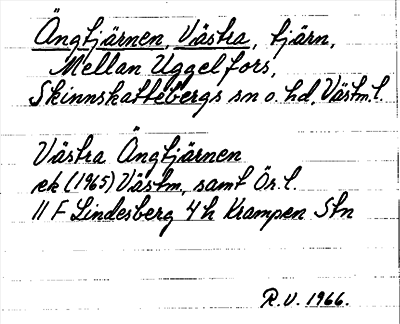 Ängtjärnen, Västra, tjärn,
Mellan Uggelfors,
Skinnskattebergs sn o. hd, Västm. l.
Västra Ängtjärnen
ek (1965) Västm, samt Ör. l.
11 F Lindesberg 4 h Krampen Stn
R.V. 1966.